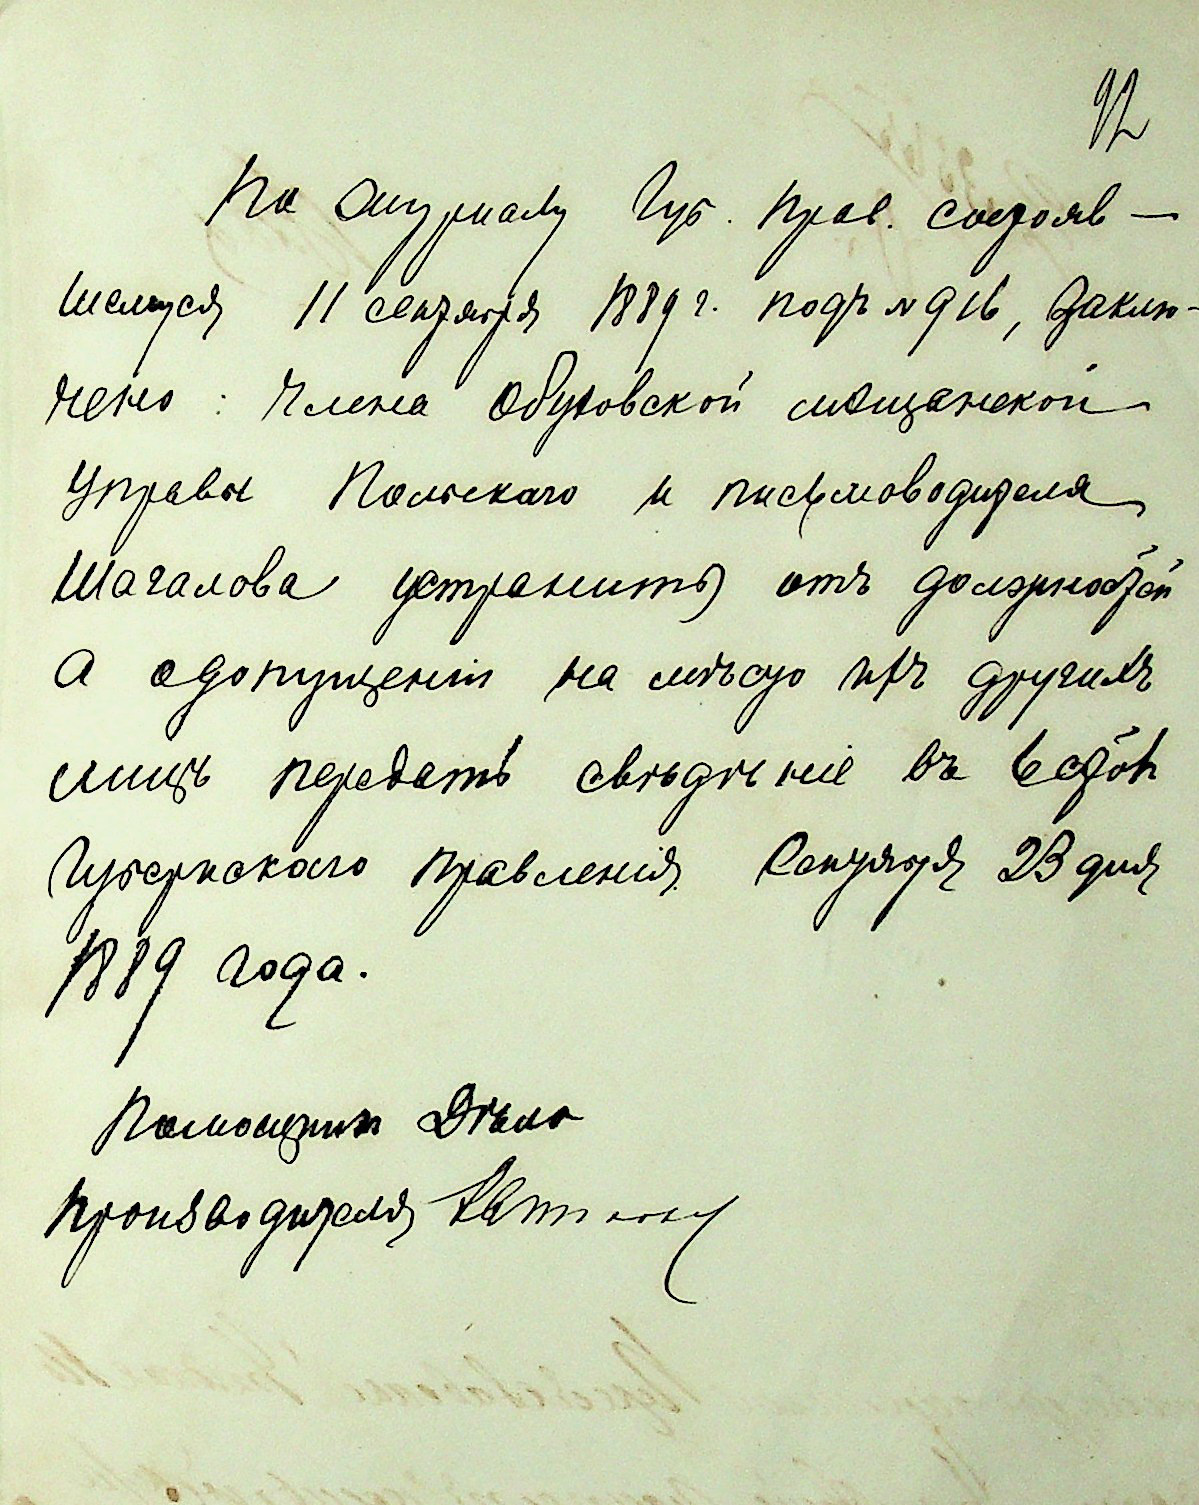 92
По журналу Губ. Прав. состояв-
шемуся 11 сентября 1889 г. подъ № 916, заклю-
чено: Члена Обуховской мещанской
Управы Польскаго и письмоводителя
Шагалова устранить отъ должностей
А о допущеніи на мѣсто ихъ другихъ
лицъ передать свѣдѣніе въ 6 стол
Губернскаго Правленія. Сентября 23 дня
1889 года.
Помощник Дѣло
производителя